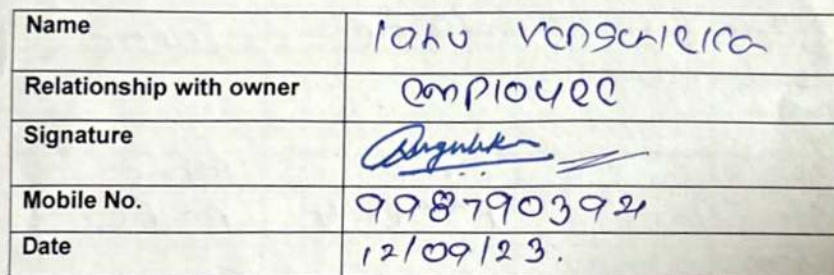 Name lahu
Relationship with owner employee
Signature
Mobile No. 9987903924
Date 12/09/23.